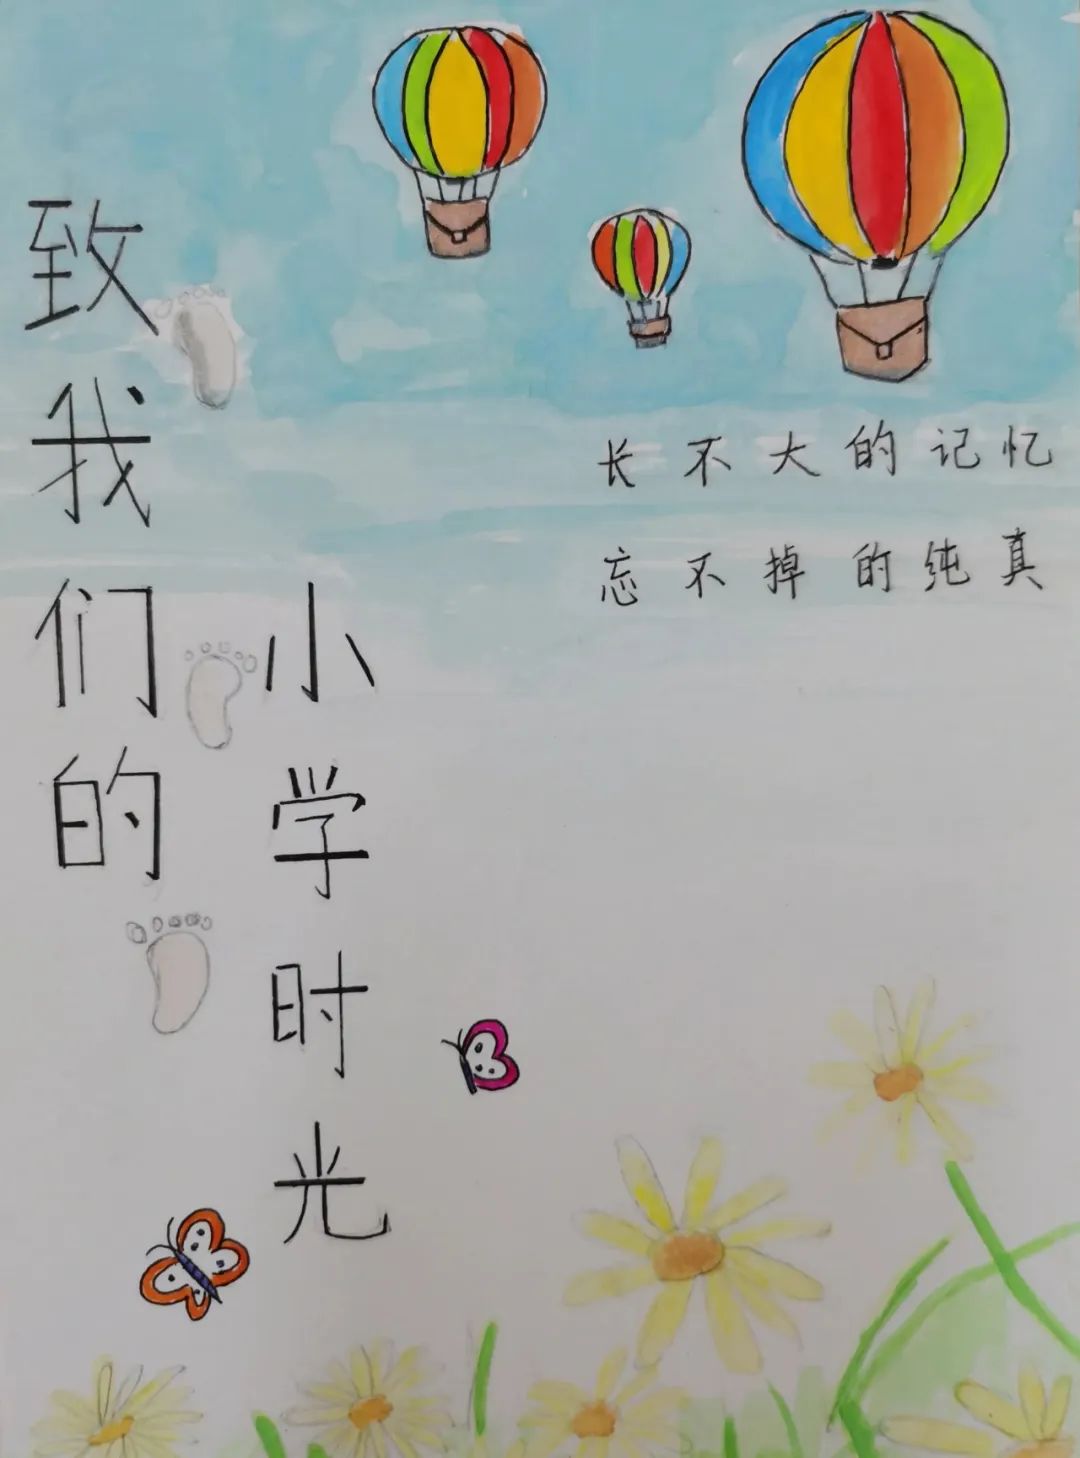 致我们的
小学时光
长不大的记忆
忘不掉的纯真